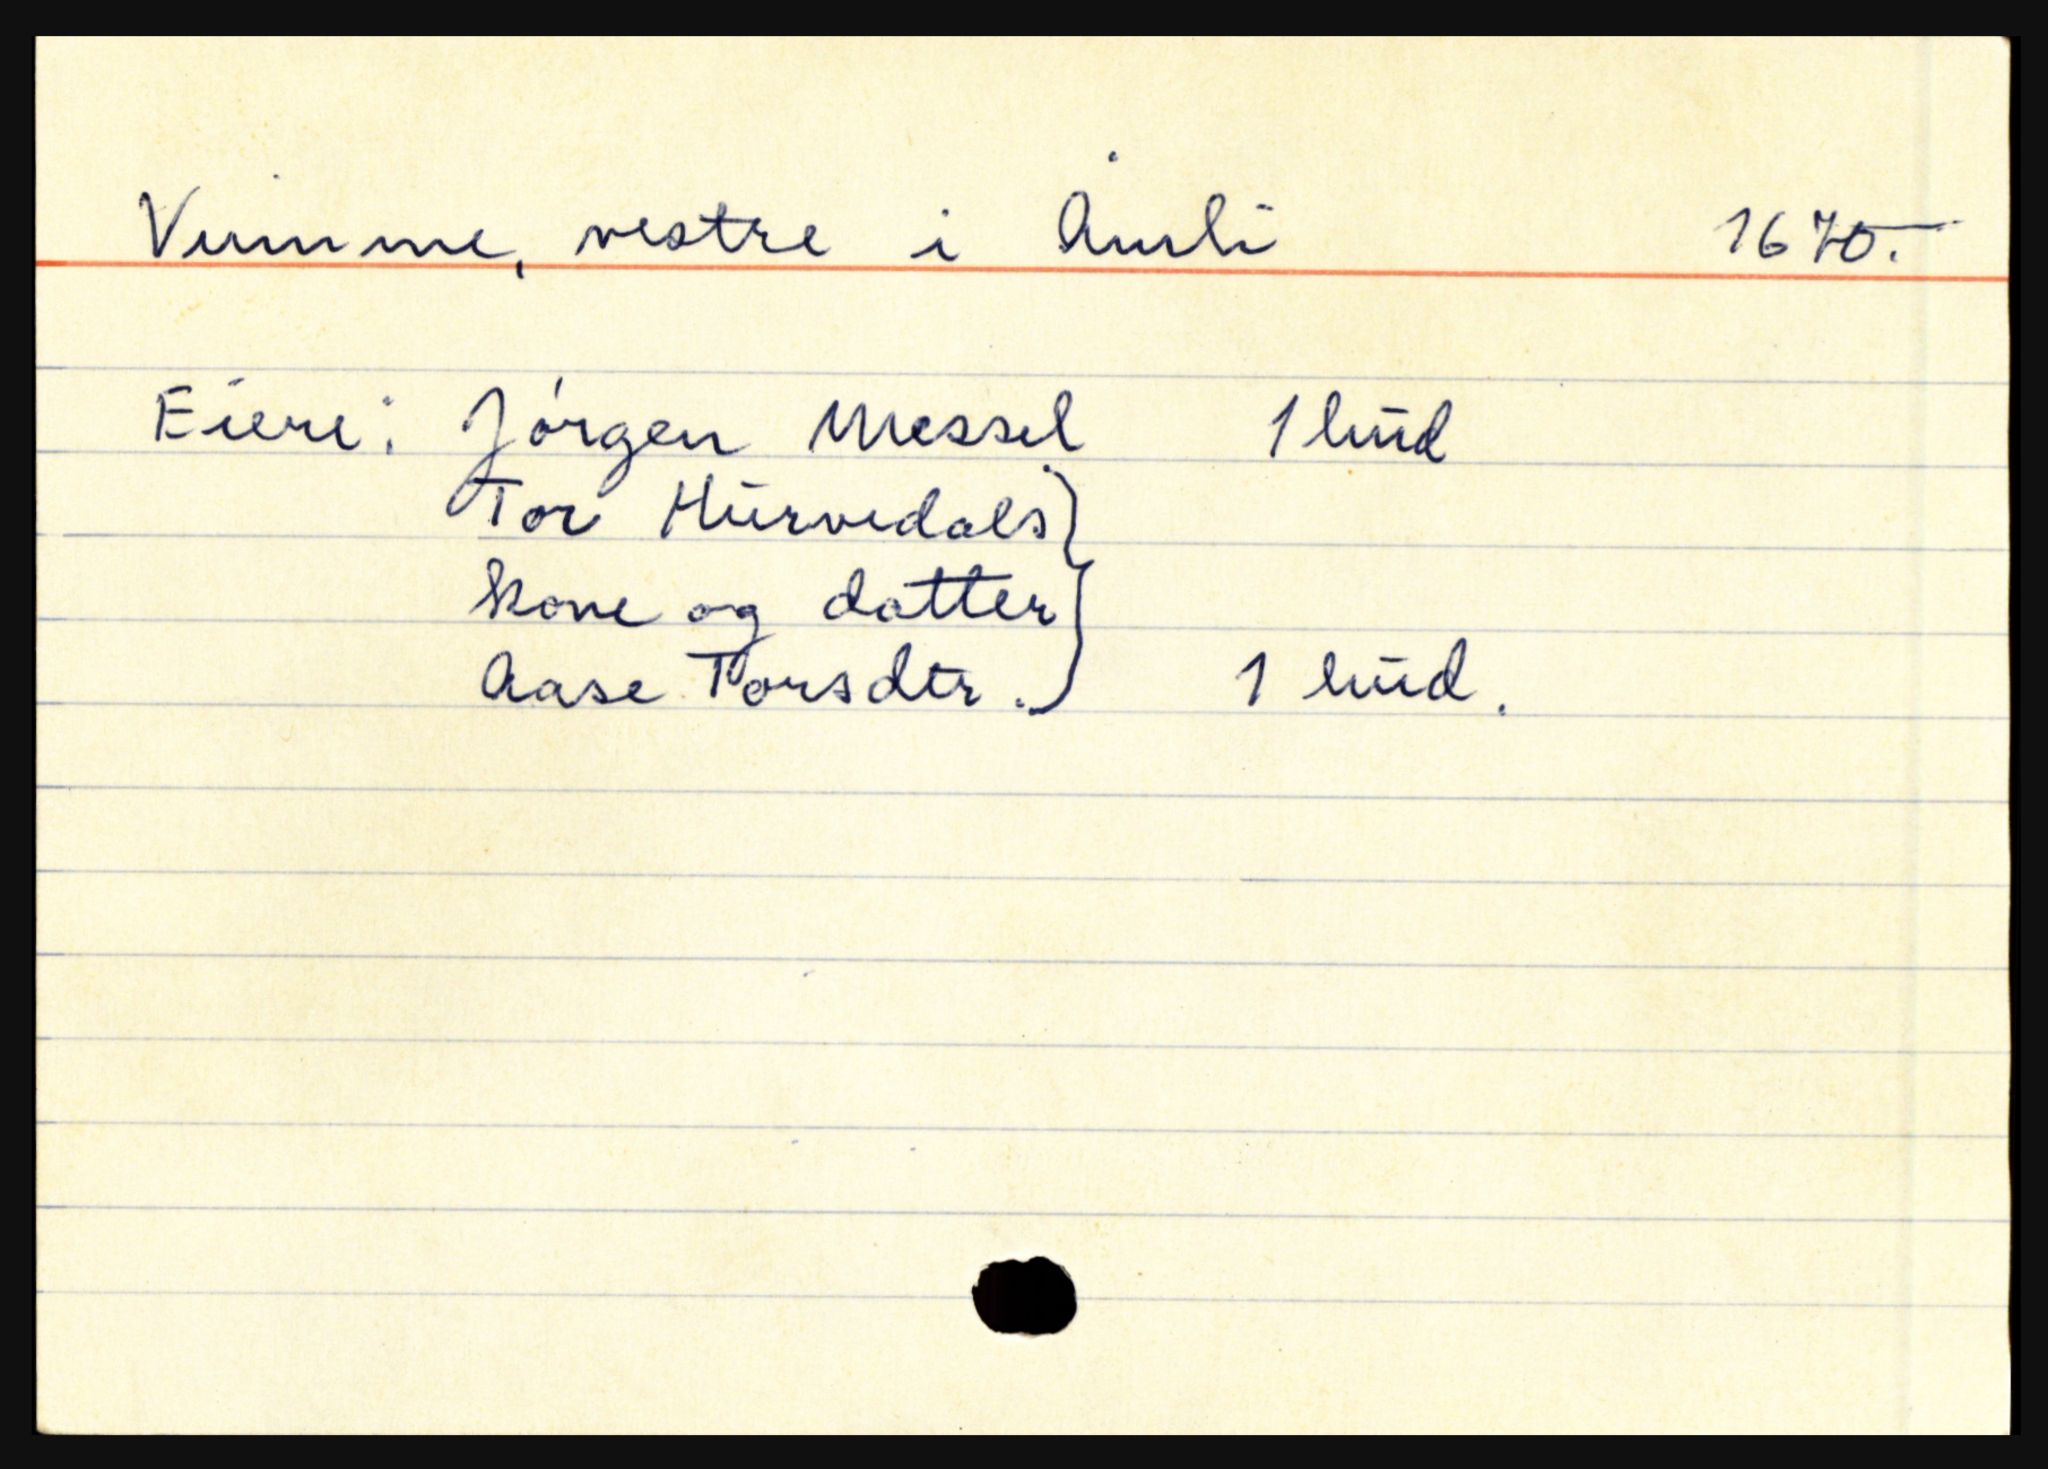 Vimme, vestre i Åmli 1670.
Eiere: Jórgen Messel 1 hud
Tor Hurvedals
Kone og datter
Aase Torsdtr. 1 hud.